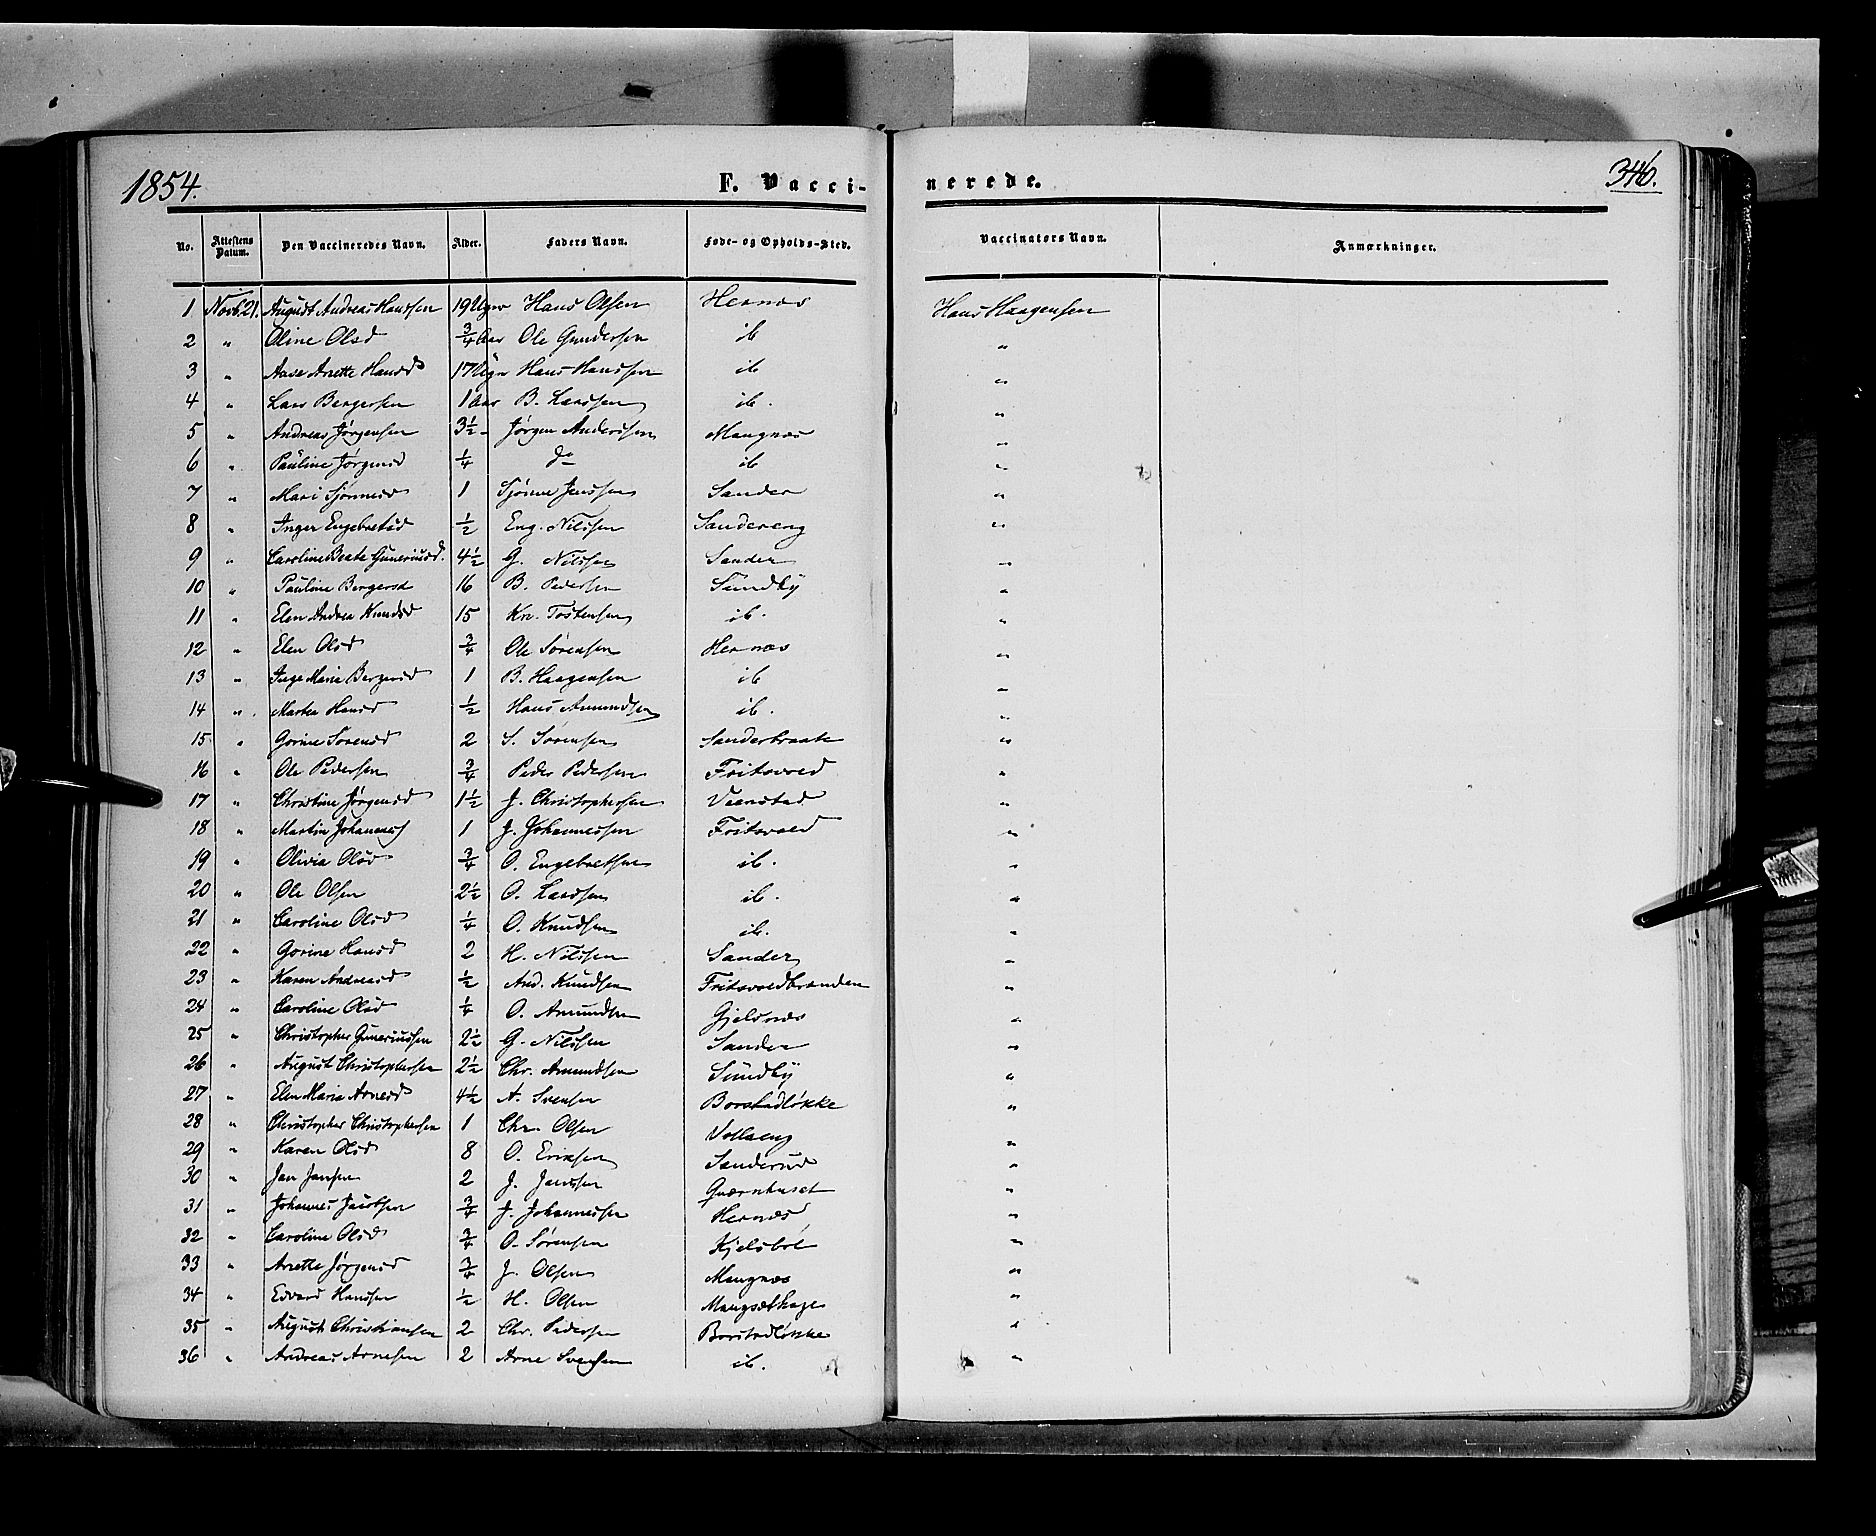 1854. F. Vacci- nerede. 346.
No. Attestens Datum. Den Vaccineredes Navn. Alder. Faders Navn. Føde- og Opholds-Sted. Vaccinators Navn. Anmærkninger.
1 Novb. 21. August Andreas Hanssen 19 Uger Hans Olsen Hernæs Hans Haagensen
2 " Oline Olsd 3/4 Aar Ole Gundersen ib "
3 " Aase Anette Hansd 17 Uger Hans Hanssen ib "
4 " Lars Bergersen 1 Aar B. Larssen ib. "
5 " Andreas Jørgensen 3 1/2 - Jørgen Anderssen Mangnæs "
6 " Pauline Jørgensd 1/4 do ib "
7 " Mari Sjønnesd 1 Sjønne Jenssen Sander "
8 " Inger Engebretsd 1/2 Eng. Nilssen Sandereng "
9 " Caroline Beate Guneriusd. 4 1/2 G. Nilssen Sander "
10 " Pauline Bergersd 16 B. Pedersen Sundby "
11 " Elen Andrea Knudsd 15 Kn. Tostensen ib. "
12 " Elen Olsd 3/4 Ole Sørensen Hernæs "
13 " Inge Marie Bergersd 1 B. Haagensen ib "
14 " Martea Hansd 1/2 Hans Amundsen ib. "
15 " Gorine Sørensd 2 S. Sørensen Sanderbraate "
16 " Ole Pedersen 3/4 Peder Pedersen Fritsvold "
17 " Christine Jørgensd 1 1/2 J. Christophersen Veenstad "
18 " Martin Johannes 1 J. Johannessen Fritsvold "
19 " Olivia Olsd 3/4 O. Engebretsen ib. "
20 " Ole Olsen 2 1/2 O. Larssen ib. "
21 " Caroline Olsd 1/4 O. Knudsen ib. "
22 " Gorine Hansd 2 H. Nilssen Sander "
23 " Karen Andreasd 1/2 And. Knudsen Fritsvoldbranden "
24 " Caroline Olsd 1/4 O. Amundsen Gjelsnæs "
25 " Christopher Guneriussen 2 1/2 G. Nilssen Sander "
26 " August Christophersen 2 1/2 Chr. Amundsen Sundby "
27 " Elen Maria Arnesd 4 1/2 A. Svensen Borstadløkke "
28 " Christopher Christophersen 1 Chr. Olsen Vollaeng "
29 " Karen Olsd 8 O. Eriksen Sanderud "
30 " Jan Jansen 2 J. Janssen Qværnhuset "
31 " Johannes Jacobsen 3/4 J. Johannessen Hernæs "
32 " Caroline Olsd 3/4 O. Sørensen Kjelsbøl "
33 " Anette Jørgensd 3/4 J. Olsen Mangnæs "
34 " Edvard Hanssen 1/2 H. Olsen Mangsæthage "
35 " August Christiansen 2 Chr. Pedersen Borstadløkke "
36 " Andreas Arnesen 2 Arne Svensen ib. "